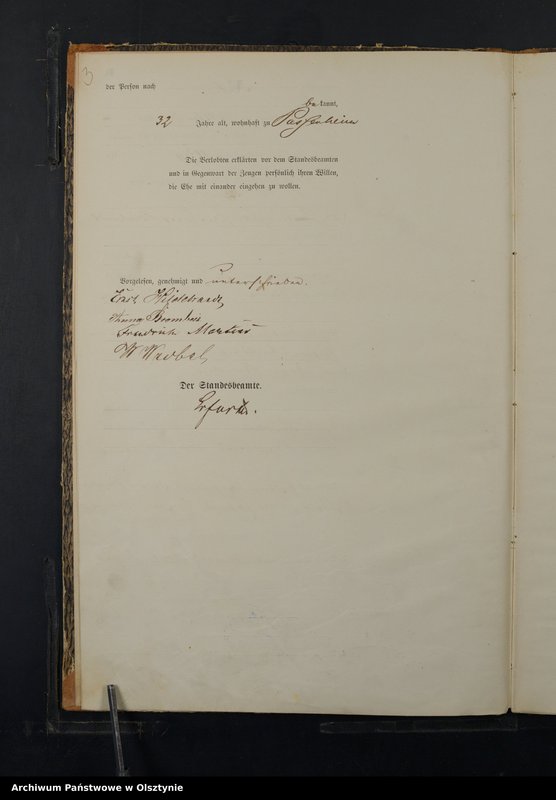 3
der Person nach
be kannt,
32 Jahre alt, wohnhaft zu Passenheim
Die Verlobten erklärten vor dem Standesbeamten
und in Gegenwart der Zeugen persönlich ihren Willen,
die Ehe mit einander eingehen zu wollen.
Vorgelesen, genehmigt und unterschrieben.
Carl Hildebrandt
Anna
Friedrich
W Wrobel
Der Standesbeamte.
Archiwum Państwowe w Olsztynie